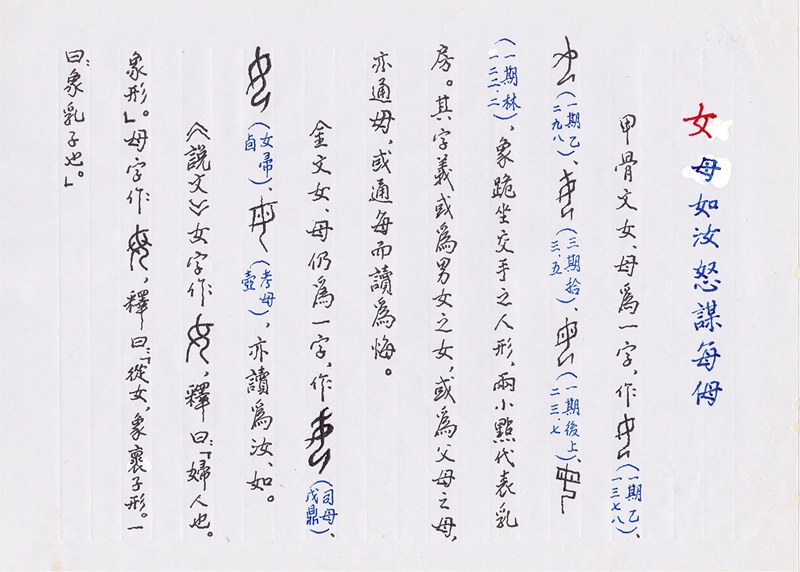 女 母如汝怒謀每侮
甲骨文女、母爲一字，作（一期乙一三七八）、
（一期乙二九八）、（三期拾三.五）（一期後上、二三.七）
（一期林一二二.二）、象跪坐交手之人形，兩小點代表乳
房。其字義或爲男女之女，或爲父母之母，
亦通毋，或通每而讀爲悔。
金文女、母仍爲一字，作（司母戊鼎）、
（女帚卣）、（考母壺），亦讀爲汝、如。
《說文》女字作，釋曰：「婦人也。
象形」。母字作，釋曰：「從女，象褱子形。一
曰：象乳子也。」